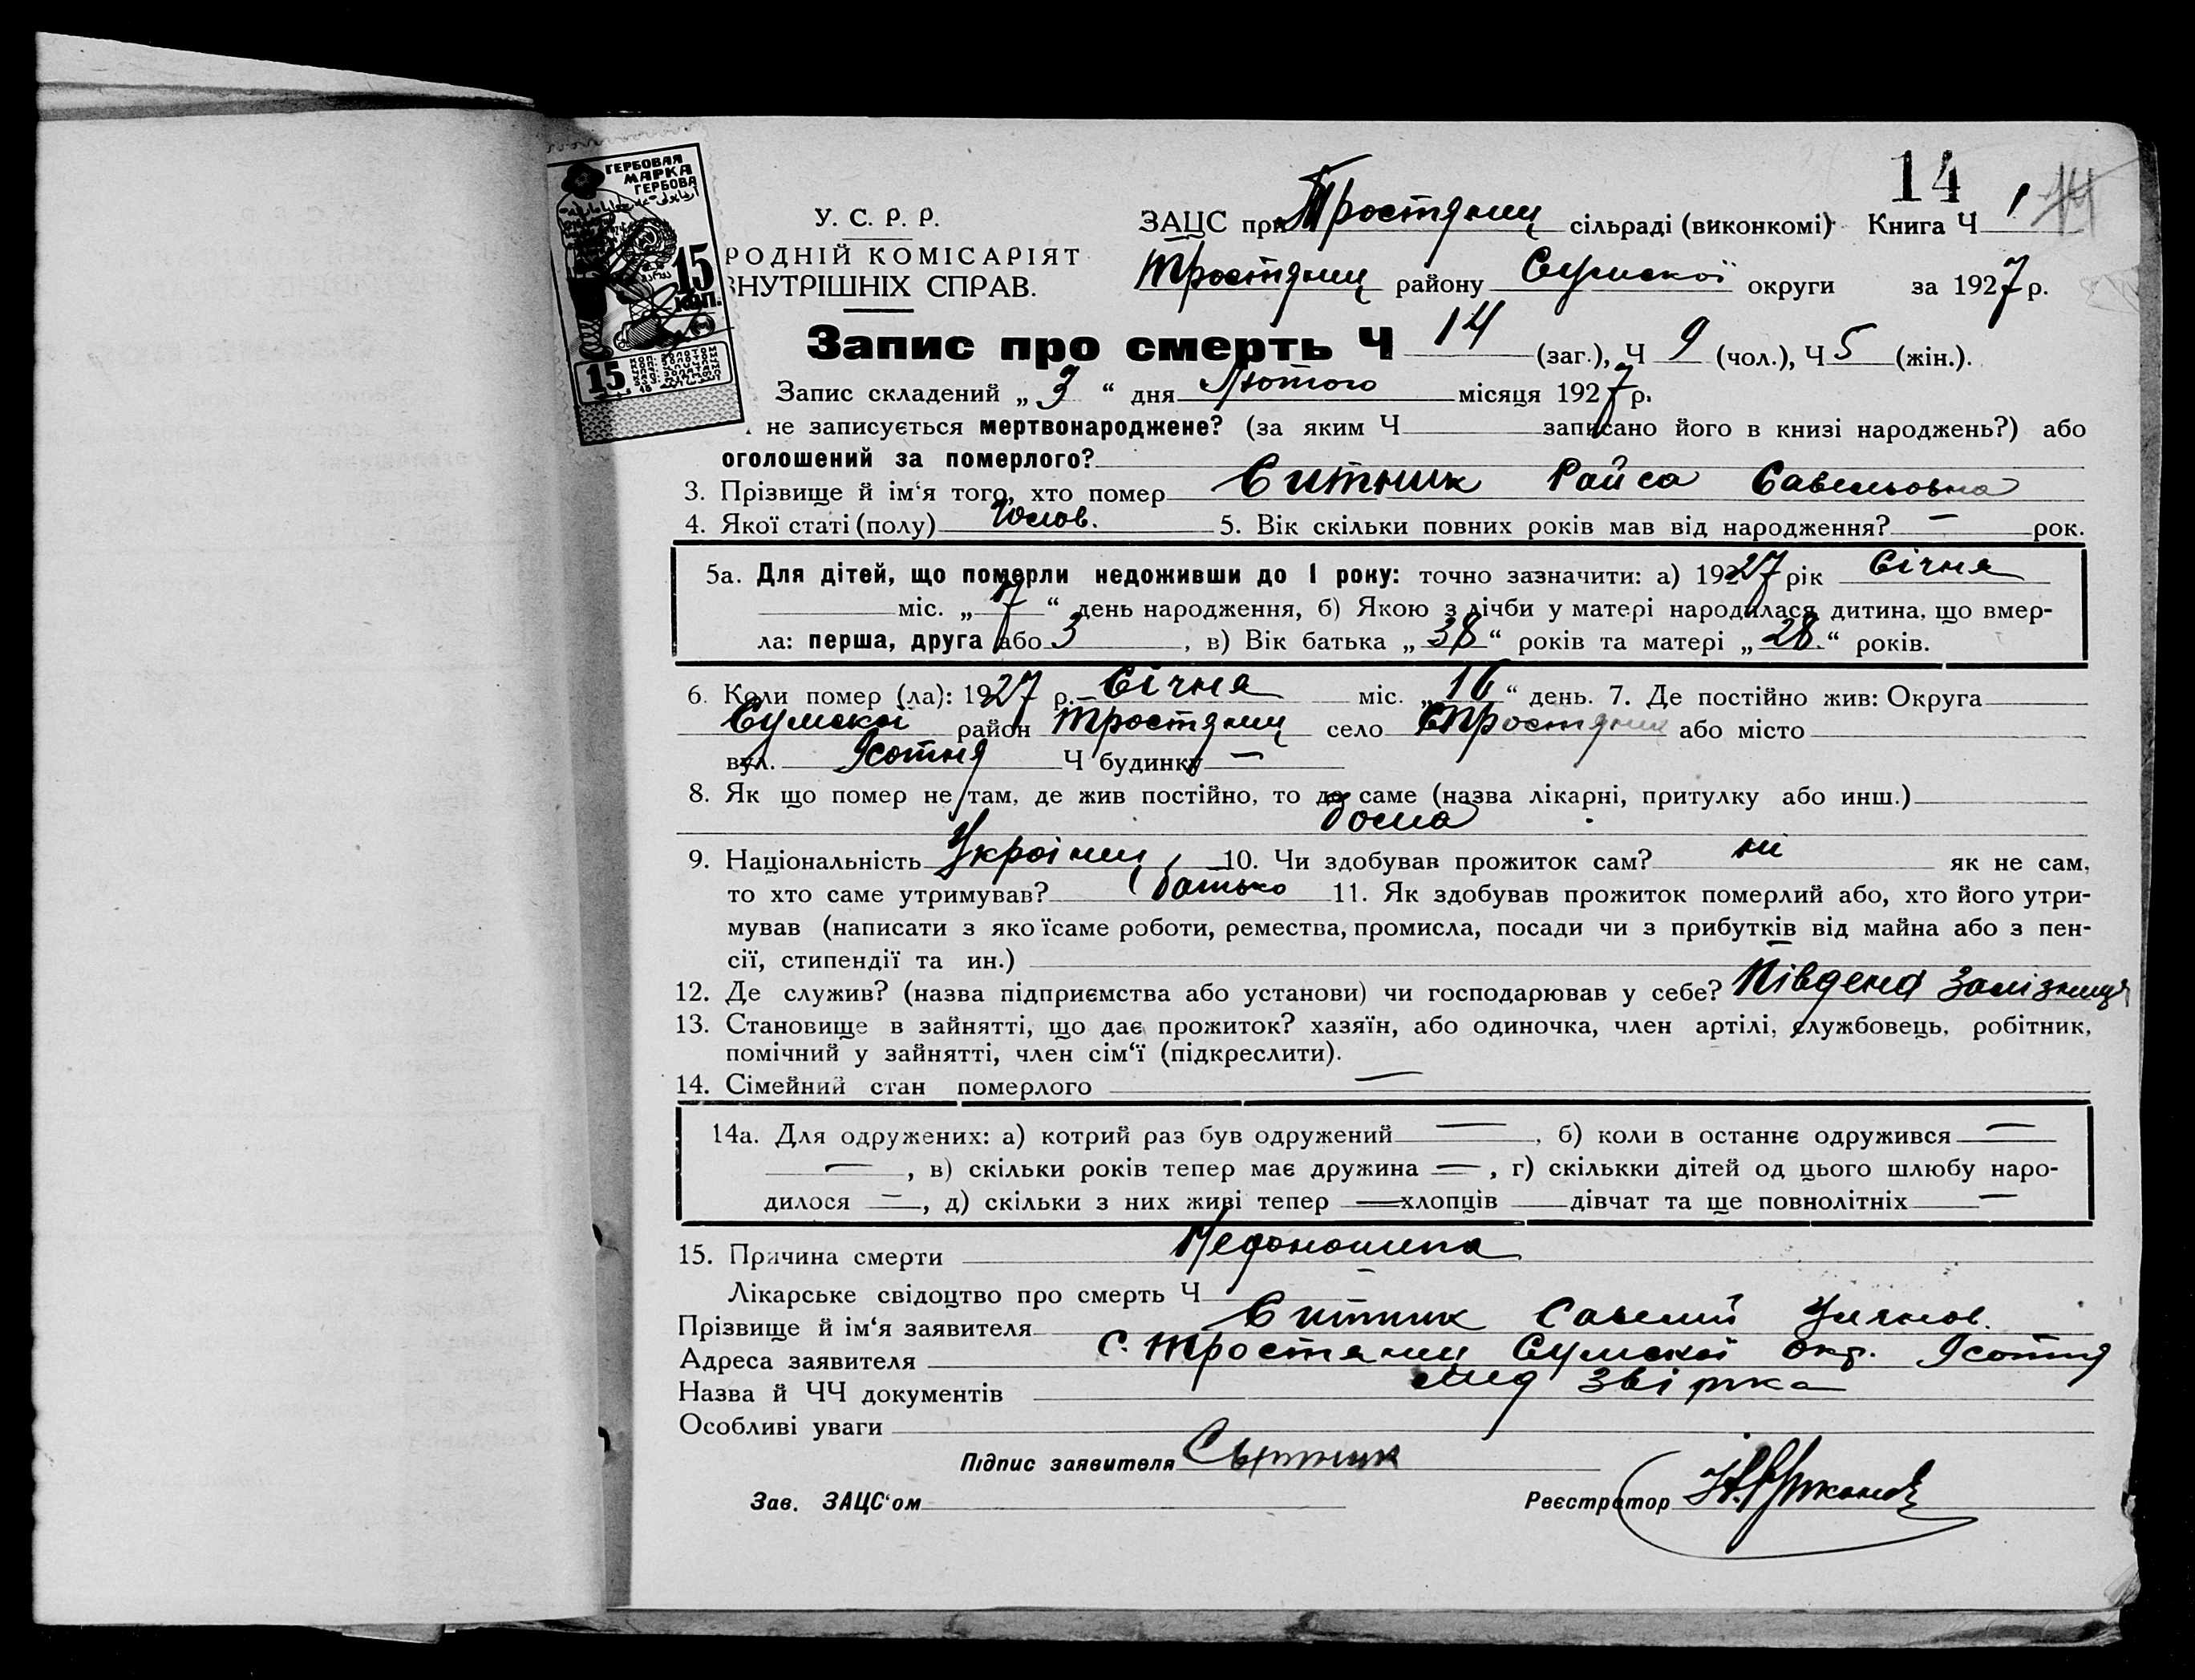 14
ГЕРБОВАЯ
МАРКА
ГЕРБОВА
15
КОП.
15
У. С. Р. Р.
РОДНІЙ КОМІСАРІЯТ
ВНУТРІШНІХ СПРАВ.
ЗАЦС при Тростянец сільраді (виконкомі) Книга Ч 1
Тростянец району Сумської округи за 1927 р.
Запис про смерть Ч 14 (заг.), Ч 9 (чол.), Ч 5 (жін.).
Запис складений „ 3 “ дня Лютого місяця 1927 р.
не записується мертвонароджене? (за яким Ч записано його в книзі народжень?) або
оголошений за померлого?
3. Прізвище й ім‘я того, хто помер Ситник Раиса Савельовна
4. Якої статі (полу) Чолов. 5. Вік скільки повних років мав від народження? — рок.
5а. Для дітей, що померли недоживши до 1 року: точно зазначити: а) 1927 рік Січня
міс. „ 7 “ день народження, б) Якою з лічби у матері народилася дитина, що вмер-
ла: перша, друга або 3, в) Вік батька „ 38 “ років та матері „ 28 “ років.
6. Коли помер (ла): 1927 р. Січня міс. „ 16 “ день. 7. Де постійно жив: Округа
Сумской район Тростянец село Тростянец або місто
вул. Ч будинку —
8. Як що помер не там, де жив постійно, то де саме (назва лікарні, притулку або инш.)
дома
9. Національність Українец, 10. Чи здобував прожиток сам? ні як не сам,
то хто саме утримував? батько 11. Як здобував прожиток померлий або, хто його утри-
мував (написати з якоїсаме роботи, ремества, промисла, посади чи з прибутків від майна або з пен-
сії, стипендії та ин.) —
12. Де служив? (назва підприємства або установи) чи господарював у себе? Південа Залізниця
13. Становище в зайнятті, що дає прожиток? хазяїн, або одиночка, член артілі, службовець, робітник,
помічний у зайнятті, член сім‘ї (підкреслити).
14. Сімейний стан померлого —
14а. Для одружених: а) котрий раз був одружений —, б) коли в останнє одружився —
—, в) скільки років тепер має дружина —, г) скількки дітей од цього шлюбу наро-
дилося —, д) скільки з них живі тепер — хлопців дівчат та ще повнолітніх —
15. Причина смерти
Лікарське свідоцтво про смерть Ч —
Прізвище й ім‘я заявителя Ситник Савелий
Адреса заявителя с. Тростянец Сумской окр.
Назва й ЧЧ документів
Особливі уваги
Підпис заявителя Сытник
Зав. ЗАЦС‘ом Реєстратор